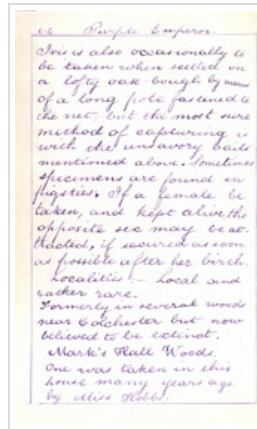 Purple Emperor.
Iris is also occasionally to
be taken when settled on
a lofty oak-bough by means
of a long pole fastened to
the net, but the most sure
method of capturing is
with the unsavory baits
mentioned above. Sometimes
specimens are found in
pigsties. If a female be
taken, and kept alive the
opposite sex may be at-
tracted, if secured as soon
as possible after her birth.
Localities:- Local and
rather rare.
Formerly in several woods
near Colchester but now
believed to be extinct.
Mark's Hall Woods.
One was taken in this
house many years ago
by Miss Hobbs.